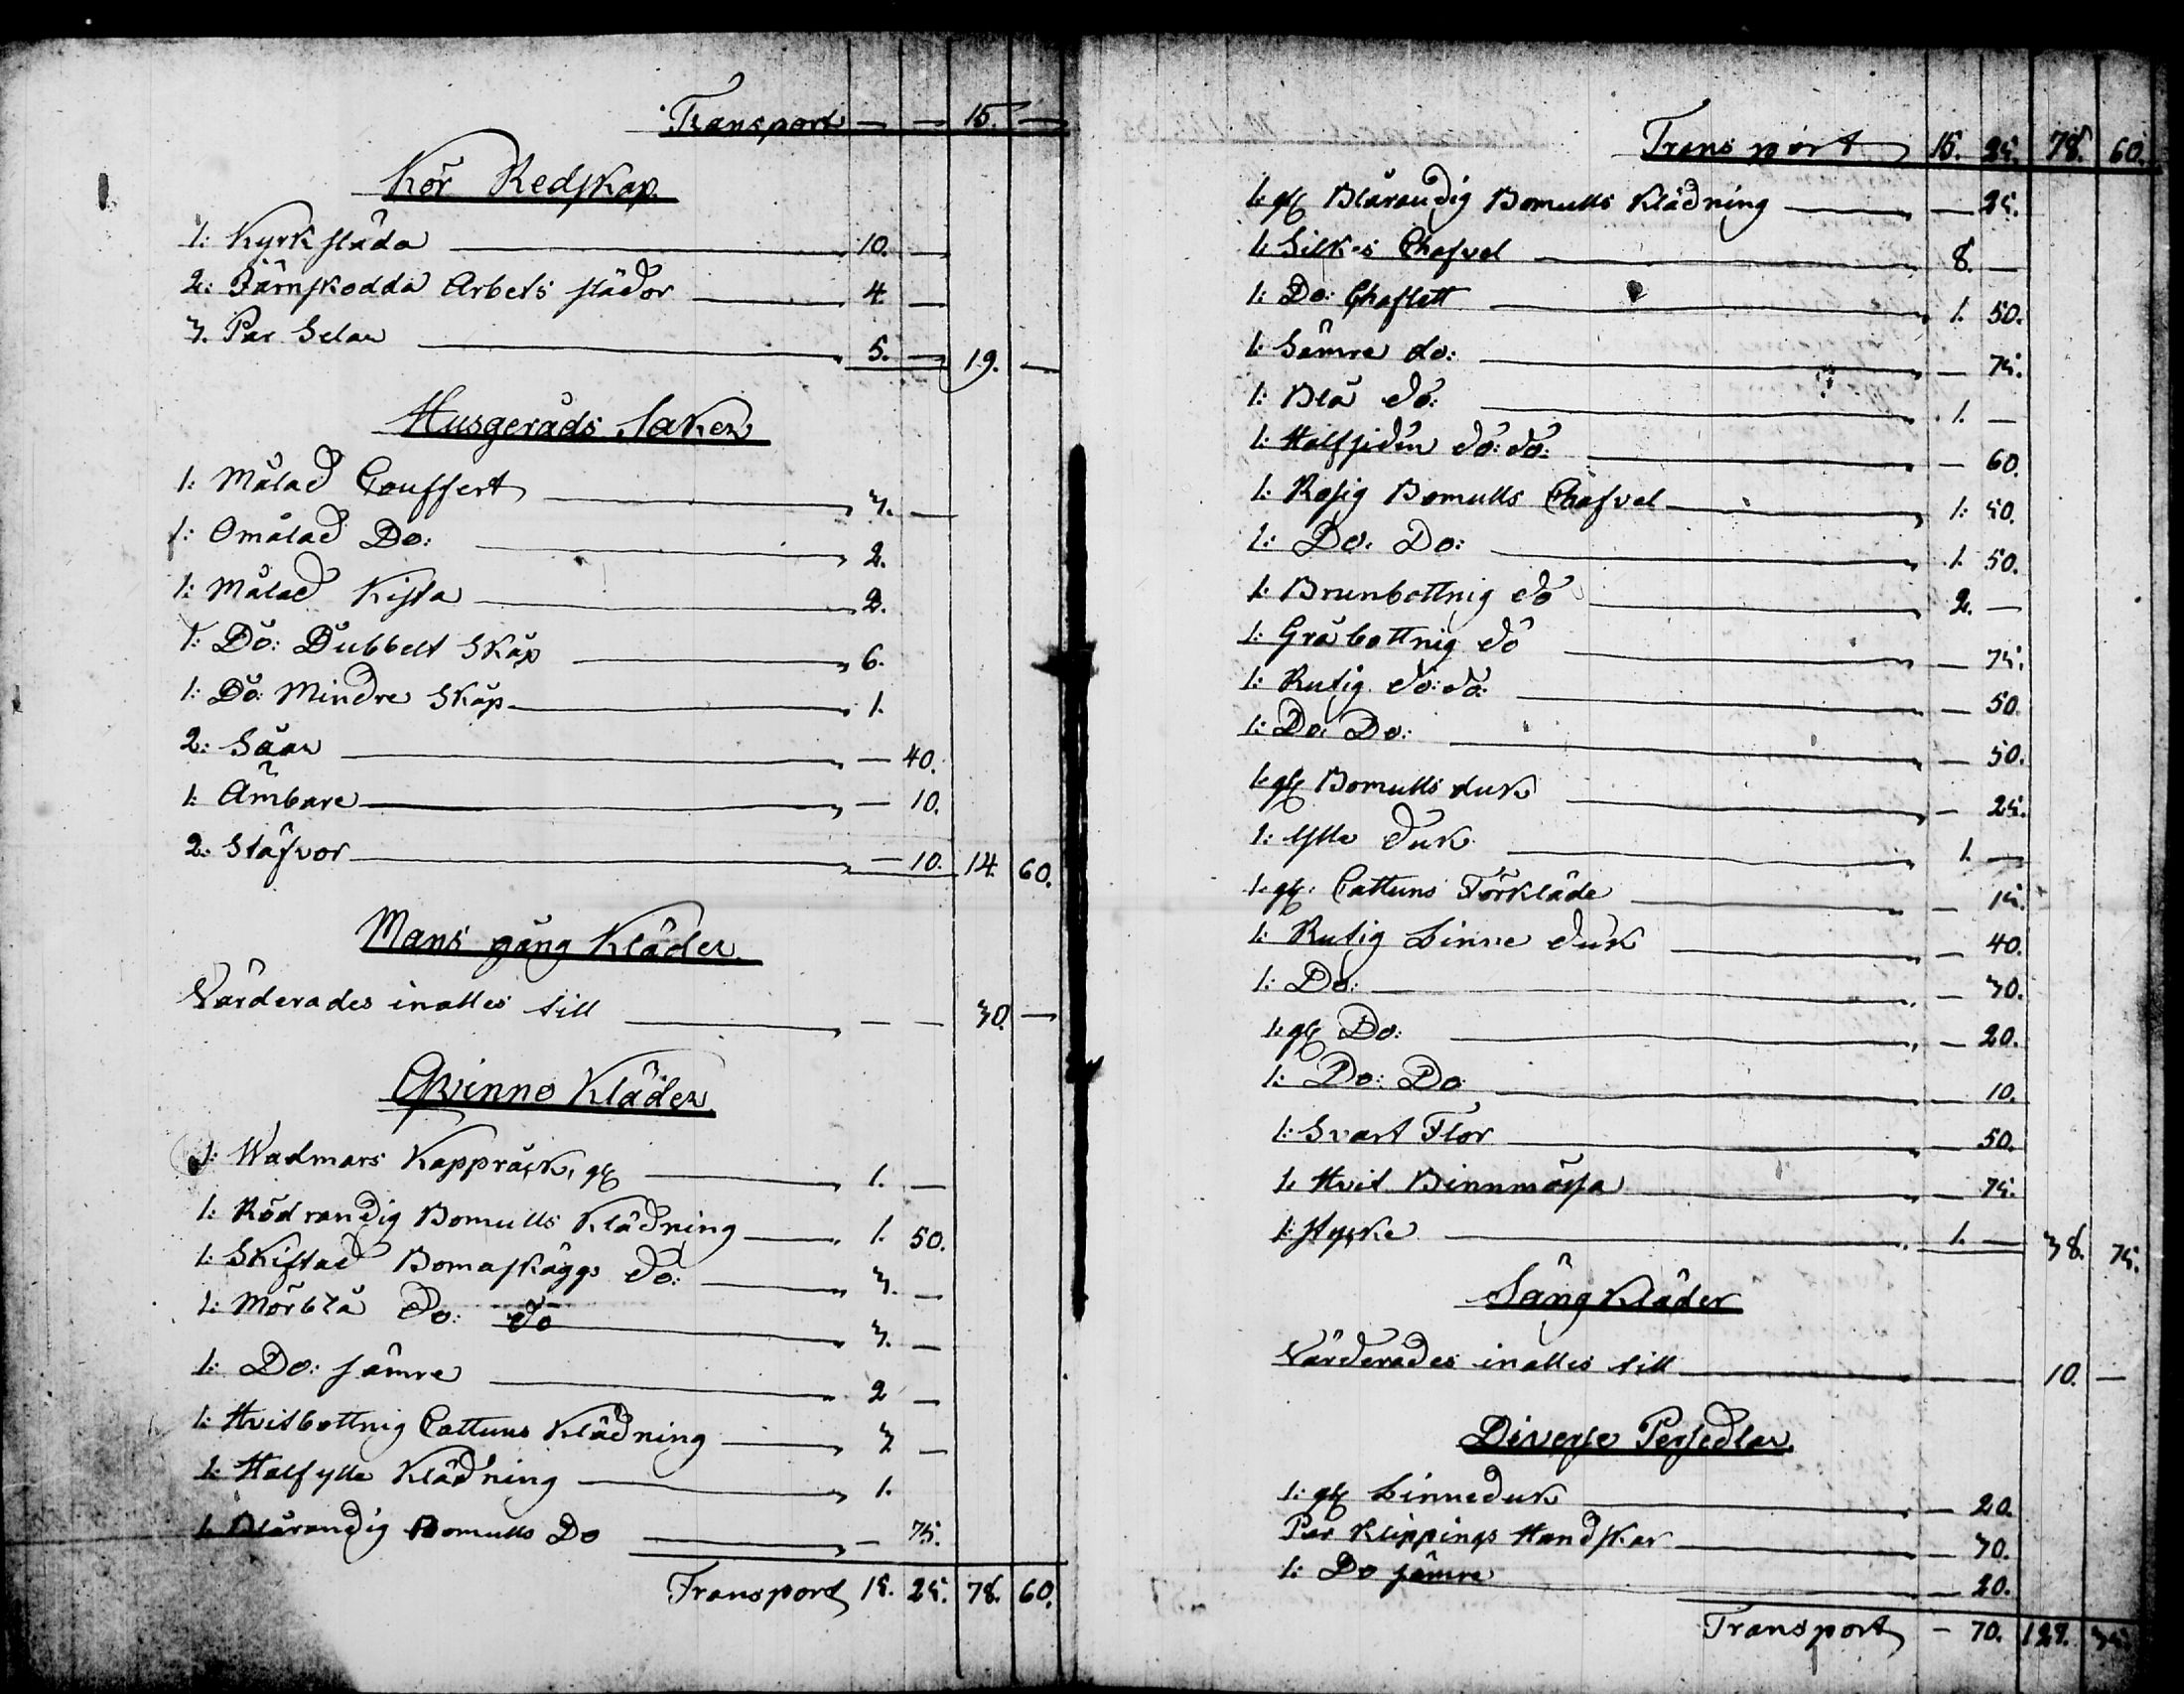 Transport — — 15. —
Kör Redskap.
1: Kyrksläda 10. —
2: Järnskodda Arbets slädor 4. —
3. Par Selar 5. — 19. —
Husgeråds Saker
1: Målad Couffert 3. —
1: Omålad Do: 2.
1: Målad Kista 2.
1: Do: Dubbelt Skåp 6.
1: Do: Mindre Skåp 1.
2: Såar — 40.
1: Ämbare — 10.
2: Stäfvor — 10. 14. 60.
Mans gång Kläder.
Värderades inalles till — — 30. —
Qvinno Kläder.
1: Wadmars Kappråck, gl 1. —
1: Rödrandig Bomulls Klädning 1. 50.
1: Skiftad Bomaskäggs do: 3. —
1: Mörblå do: do 3. —
1: Do: sämre 2 —
1: Hvitbottnig Cattuns Klädning 3 —
1: Halfylle Klädning 1.
1. Blårandig Bomulls Do — 75.
Transport 15. 25. 78. 60.
Transport 15. 25. 78. 60.
1: gl Blårandig Bomulls Klädning — 25.
1: Silkes Chasvel 8. —
1: Do: Chaslett 1. 50.
1: Sämre do: — 75.
1: Blå do: 1. —
1: Halfsiden do: do: — 60.
1: Rosig Bomulls Chasvel 1: 50.
1: Do. Do: 1. 50.
1: Brunbottnig do 2. —
1: Gråbottnig do — 75.
1: Rutig do: do: — 50.
1: Do: Do: — 50.
1: gl Bomulls duk — 25.
1: Ylle duk 1. —
1. gl. Cattuns Förkläde — 15.
1: Rutig Linne duk — 40.
1: Do: — 30.
1: gl Do: — 20.
1: Do: Do — 10.
1: Svart Flor — 50.
1. Hvit Binnmössa — 75.
1: Stycke 1. — 38. 75.
Säng Kläder
Värderades inalles till — — 10. —
Diverse Persedlar.
1: gl Linneduk — 20.
Par Klippings Handskar — 30.
1: Do sämre — 20.
Transport — 70. 127. 35.